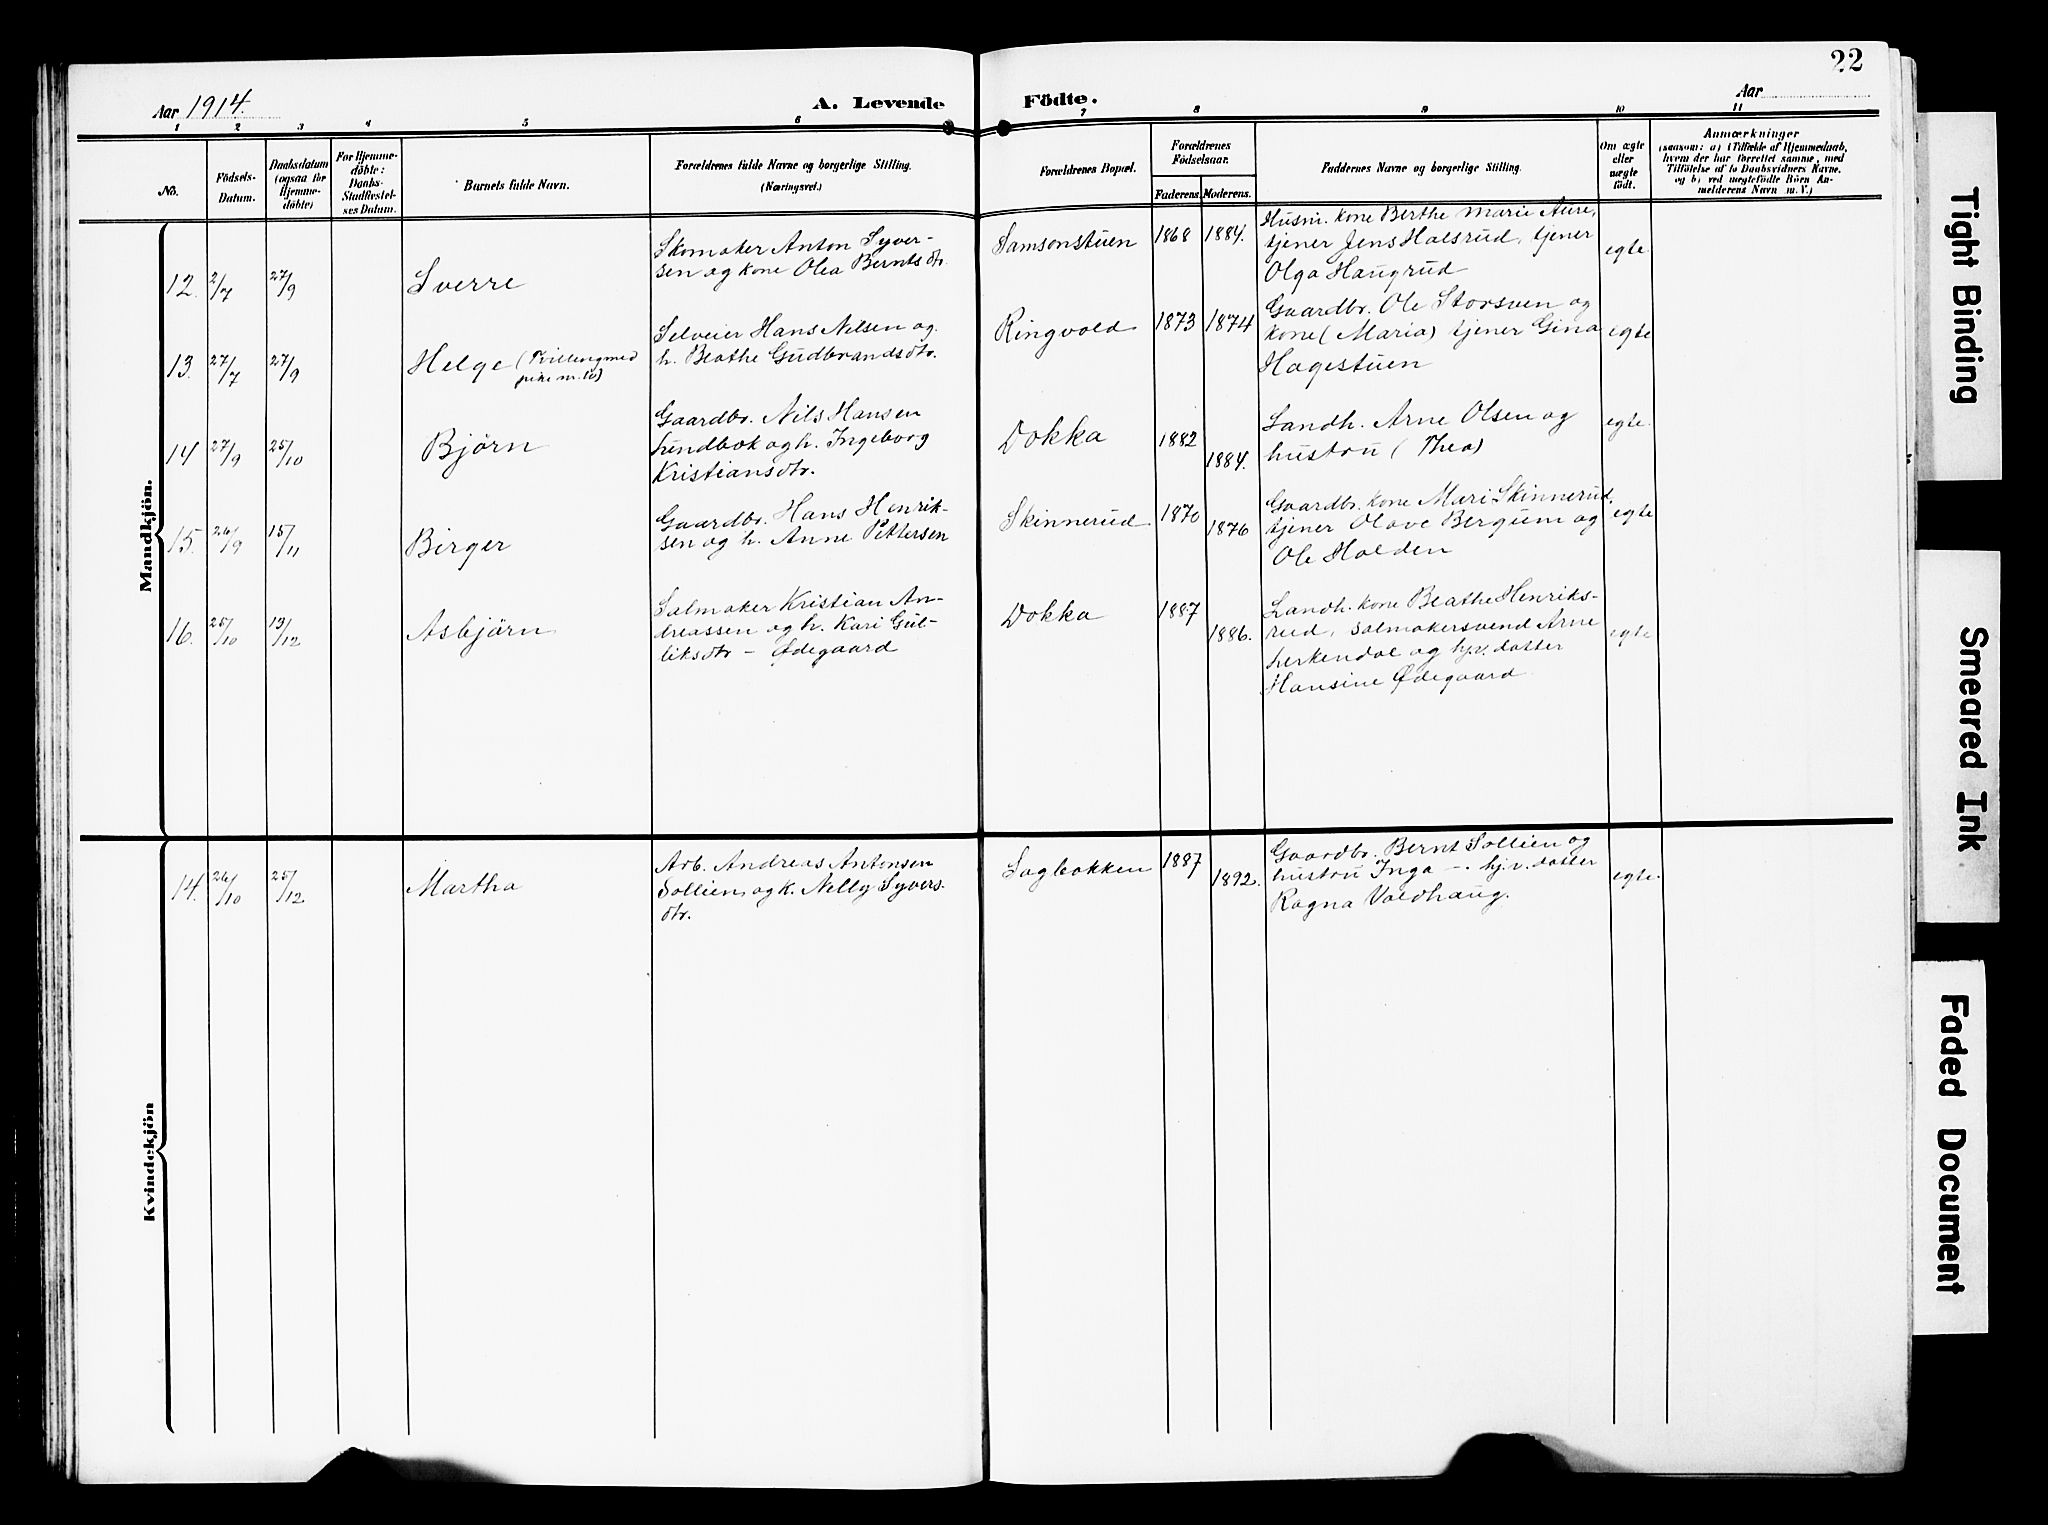 22
Aar 1914.
A. Levende Födte.
Aar
1 2 3 4 5 6 7 8 9 10 11
No.
Födsels-
Datum.
Daabsdatum
(ogsaa for
Hjemme-
döbte)
For Hjemme-
döbte:
Daabs-
Stadfæstel-
ses Datum.
Barnets fulde Navn.
Forældrenes fulde Navne og borgerlige Stilling.
(Næringsvei.)
Forældrenes Bopæl.
Forældrenes
Födselsaar.
Faderens. Moderens.
Faddernes Navne og borgerlige Stilling.
Om ægte
eller
uægte
födt.
Anmærkninger
(saasom: a) (Tilfælde af Hjemmedaab,
hvem der har forrettet samme, med
Tilföielse af to Daabsvidners Navne.
og b) ved uægtefödte Börn An-
melderens Navn m. V.)
Mandkjön.
12. 2/7 27/9 Sverre
Skomaker Anton Syver-
sen og kone Olea Berntsdtr.
Samsonstuen 1868 1884.
Husm. kone Berthe Marie Aure,
tjener Jens Halsrud, tjener
Olga Haugrud
egte
13. 27/7 27/9 Helge (Tvilling med
pike nr. 10)
Selveier Hans Nilsen og
h. Beathe Gudbrandsdtr.
Ringvold 1873 1874
Gaardbr. Ole Storsven og
kone (Maria) tjener Gina
Hagestuen
egte
14 27/9 25/10 Bjørn
Gaardbr. Nils Hansen
Lundbæk og h. Ingeborg
Kristiansdtr.
Dokka 1882 1884.
Landh. Arne Olsen og
hustru (Thea)
egte.
15. 26/9 15/11 Birger
Gaardbr. Hans Henrik-
sen og h. Anne Pettersen
Skinnerud 1870 1876
Gaardbr. kone Mari Skinnerud,
tjener Olave Bergum og
Ole Halden
egte
16. 25/10 13/12 Asbjørn
Salmaker Kristian An-
dreassen og h. Kari Gul-
liksdtr – Ødegaard
Dokka 1887 1886.
Landh. kone Beathe Henriks-
rud, salmakersvend Arne
Lerkendal og hj.v. datter
Hansine Ødegaard
egte
Kvindekjön
14. 26/10 25/12 Martha
Arb. Andreas Antonsen
Sollien, og k. Nelly Syvers-
dtr.
Sagbakken 1887 1892.
Gaardbr. Bernt Sollien og
hustru Inga –. hj.v. datter
Ragna Valdhaug.
egte.
Tight Binding
Smeared Ink
Faded Document